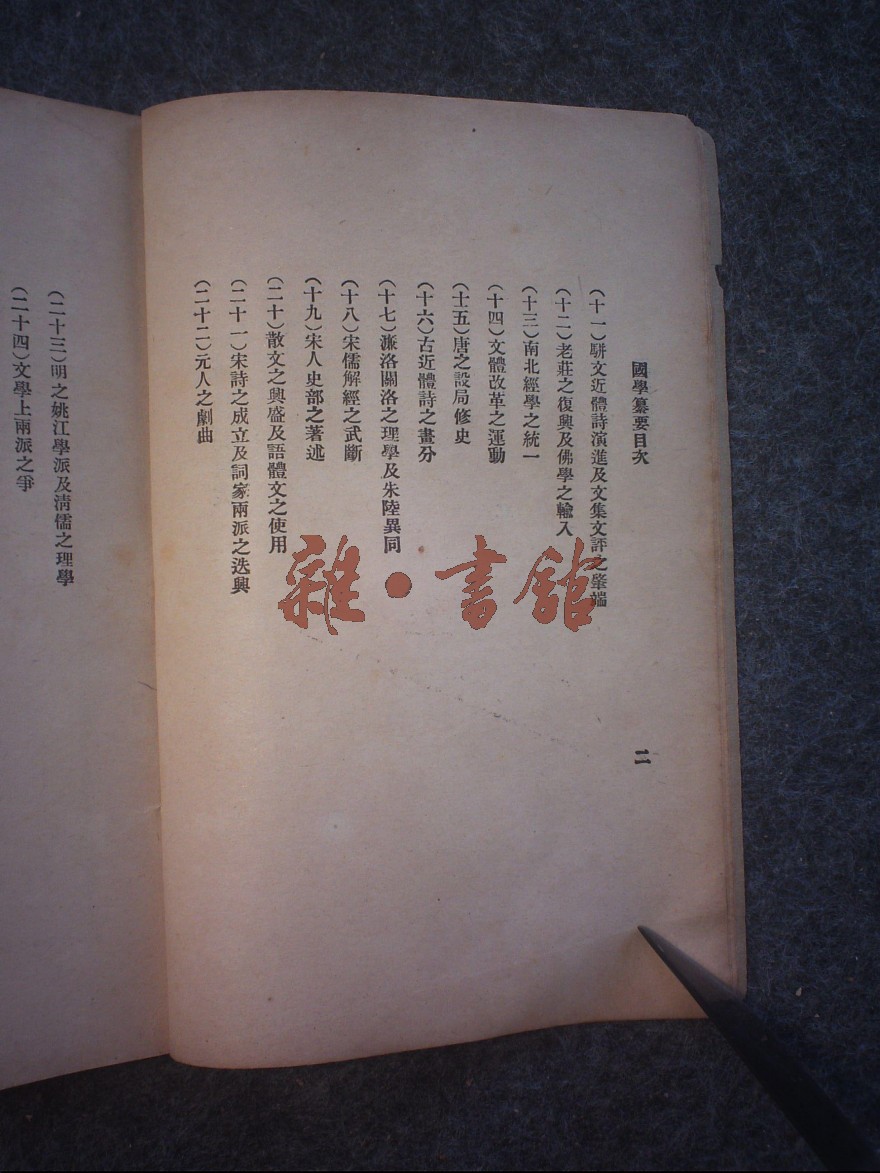 國學纂要目次
二
(十一)駢文近體詩演進及文集文評之肇端
(十二)老莊之復興及佛學之輸入
(十三)南北經學之統一
(十四)文體改革之運動
(十五)唐之設局修史
(十六)古近體詩之畫分
(十七)濂洛關洛之理學及朱陸異同
(十八)宋儒解經之武斷
(十九)宋人史部之著述
(二十)散文之興盛及語體文之使用
(二十一)宋詩之成立及詞家兩派之迭興
(二十二)元人之劇曲
(二十三)明之姚江學派及清儒之理學
(二十四)文學上兩派之爭
雜·書館